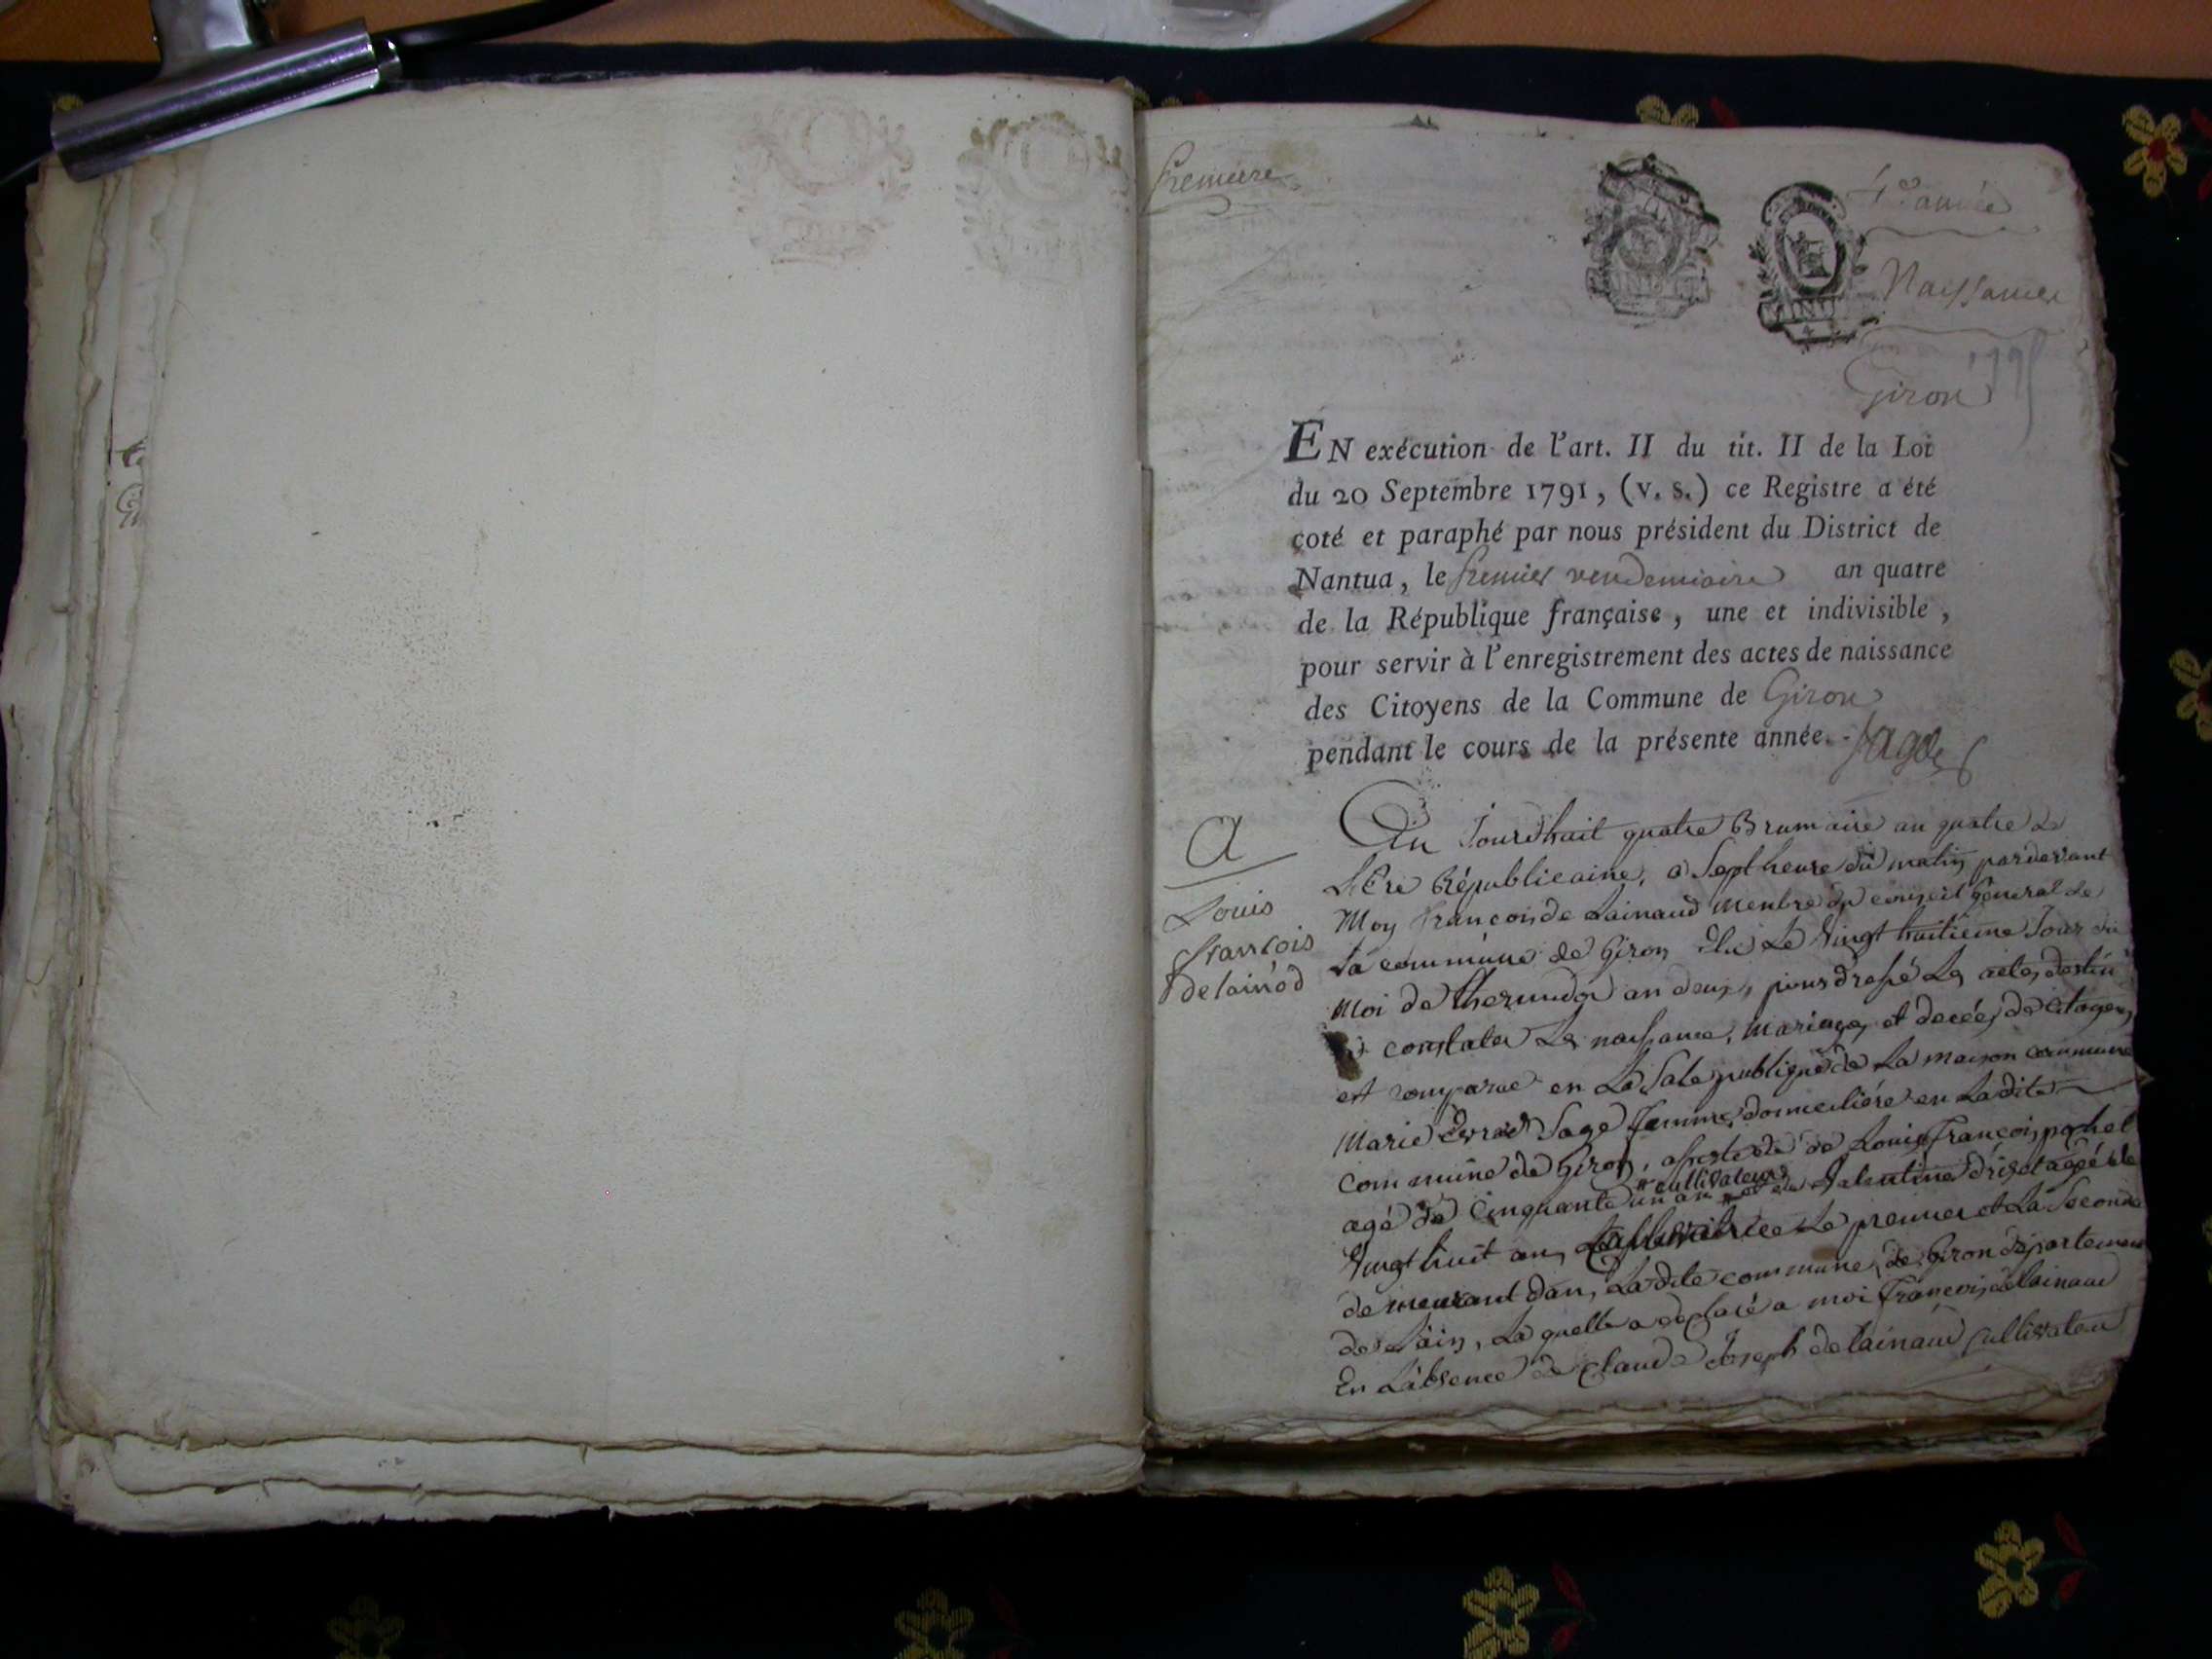 Premiere
4e année
Naissances
1795
Giron
EN exécution de l'art. II du tit. II de la Loi
du 20 Septembre 1791, (v. s.) ce Registre a été
coté et paraphé par nous président du District de
Nantua, le premier vendemiaire an quatre
de la République française, une et indivisible,
pour servir à l'enregistrement des actes de naissance
des Citoyens de la Commune de Giron
pendant le cours de la présente année.
A
Louis
francois
delainod
Au Jourdhuit quatre Brumaire an quatre de
L'Ere Républicaine, a Sept heure du matin pardevant
Moy francois de Lainaud menbre du conseil général de
La commune de Giron Elu Le Vingt huitieme Jour du
moi de thermidor an deux, pour dresé Les actes destiné
a constater Les naissance, mariages et decées de citoyens
est comparue en La Sale publique de La maison commune
Marie Sage femme domeciliére en Ladite
commune de Giron, assistée de Louis françois
agé de Cinquante un an cultivateur et de Valentine agée de
Vingt huit an, Le premier et La Seconde
demeurant dans Ladite commune de Giron département
de Lain, La quelle a déclaré a moi françois delainaud
En L'absence de Claude Joseph delainaud cultivateur